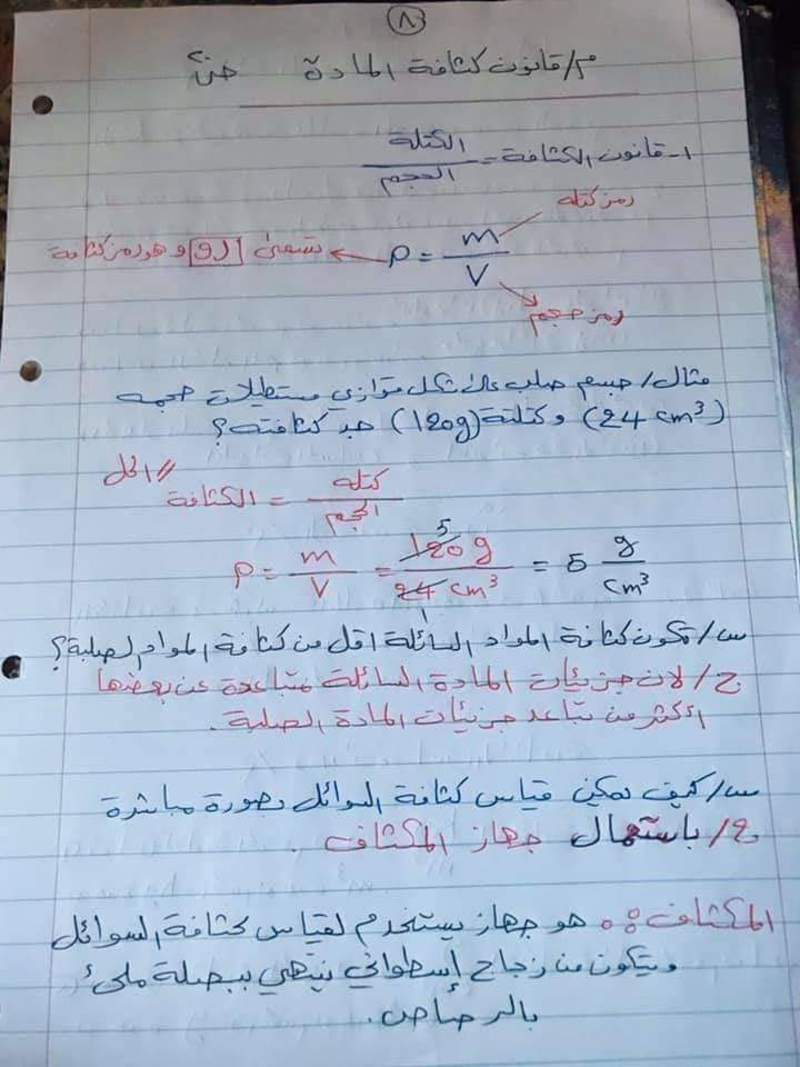 ٨
م/ قانون كثافة المادة
١- قانون الكثافة = الكتلة / الحجم
رمز كتله
ρ = m / V ← تسمى رو وهو رمز كثافة
رمز حجم
مثال/ جسم صلب على شكل متوازي مستطيلات حجمه
(24 cm³) وكتلته (120g) جد كثافته؟
الحل //
الكثافة = كتله / الحجم
ρ = m / V = 120 g / 24 cm³ = 5 g / cm³
5
1
س/ تكون كثافة المواد السائلة اقل من كثافة المواد الصلبة؟
ج/ لان جزيئات المادة السائلة متباعدة عن بعضها
اكثر من تباعد جزيئات المادة الصلبة.
س/ كيف يمكن قياس كثافة السوائل بصورة مباشرة
ج/ باستعمال جهاز المكثاف.
المكثاف: هو جهاز يستخدم لقياس كثافة السوائل
ويتكون من زجاج إسطواني ينتهي ببصلة ملئ
بالرصاص.